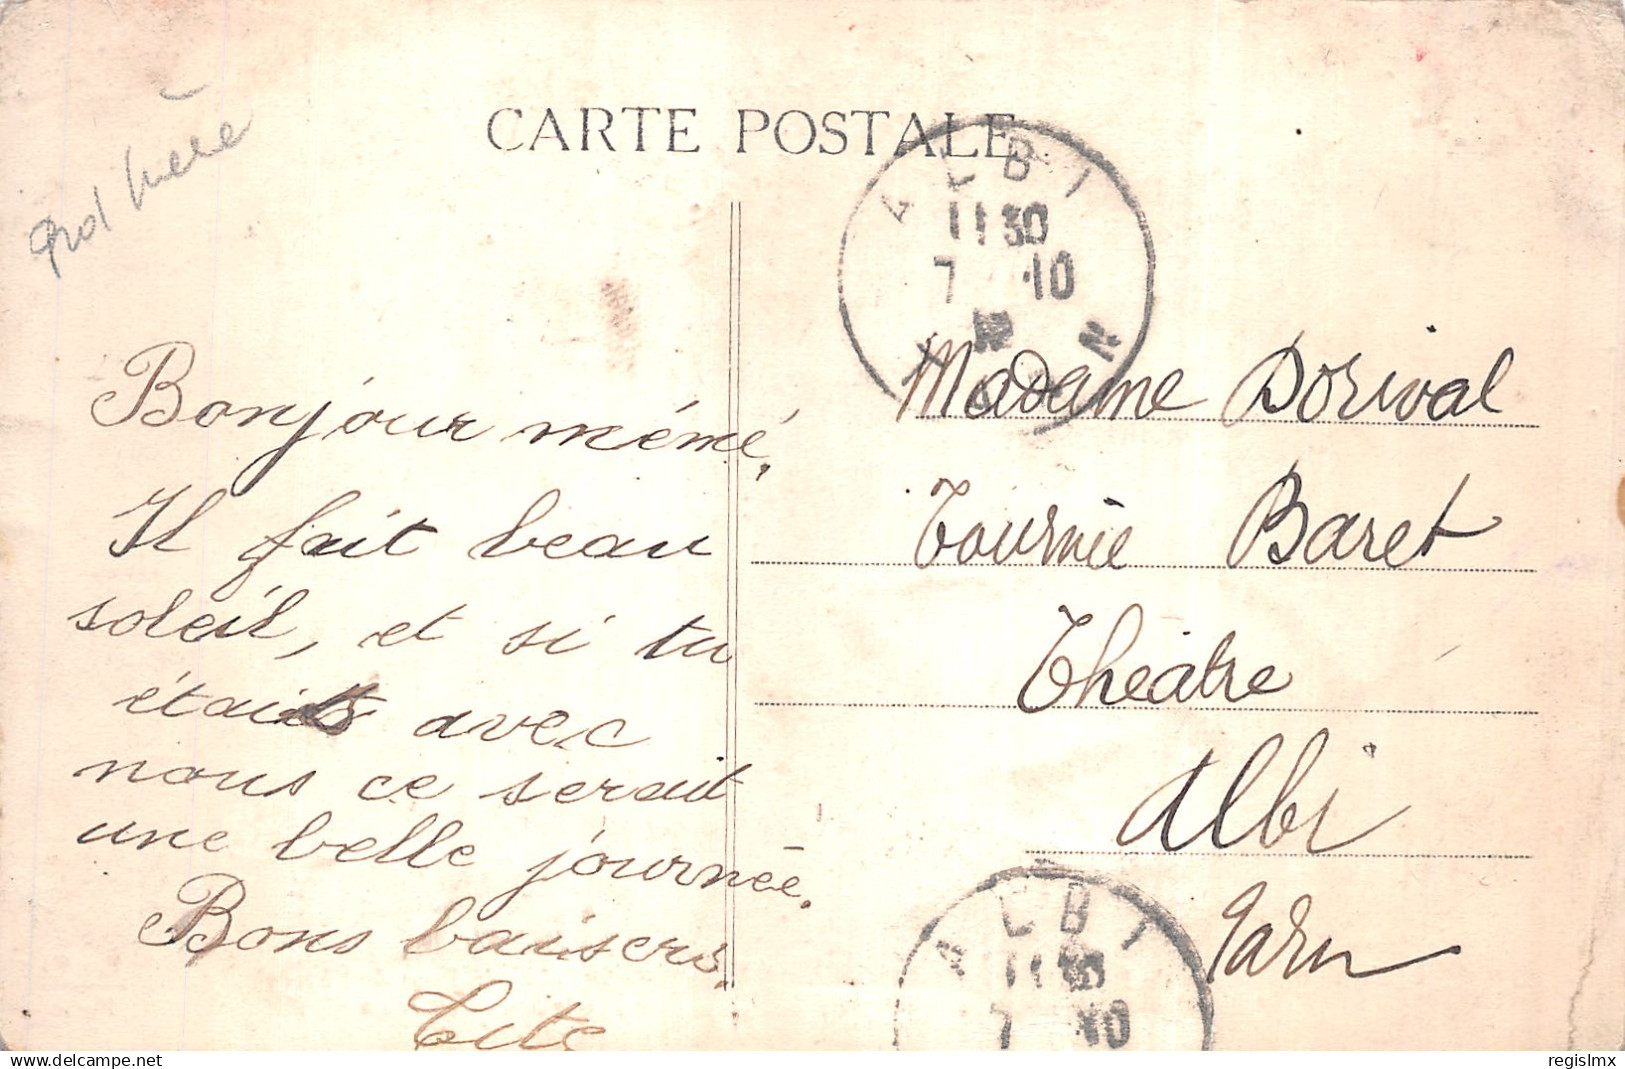 CARTE POSTALE
ALBI
11 30
7 10
Bonjour mémé,
Il fait beau
soleil, et si tu
étais avec
nous ce serait
une belle journée.
Bons baisers.
Madame Dorival
Tournée Baret
Théâtre
Albi
Tarn
ALBI
11 30
7 10
www.delcampe.net
regislmx